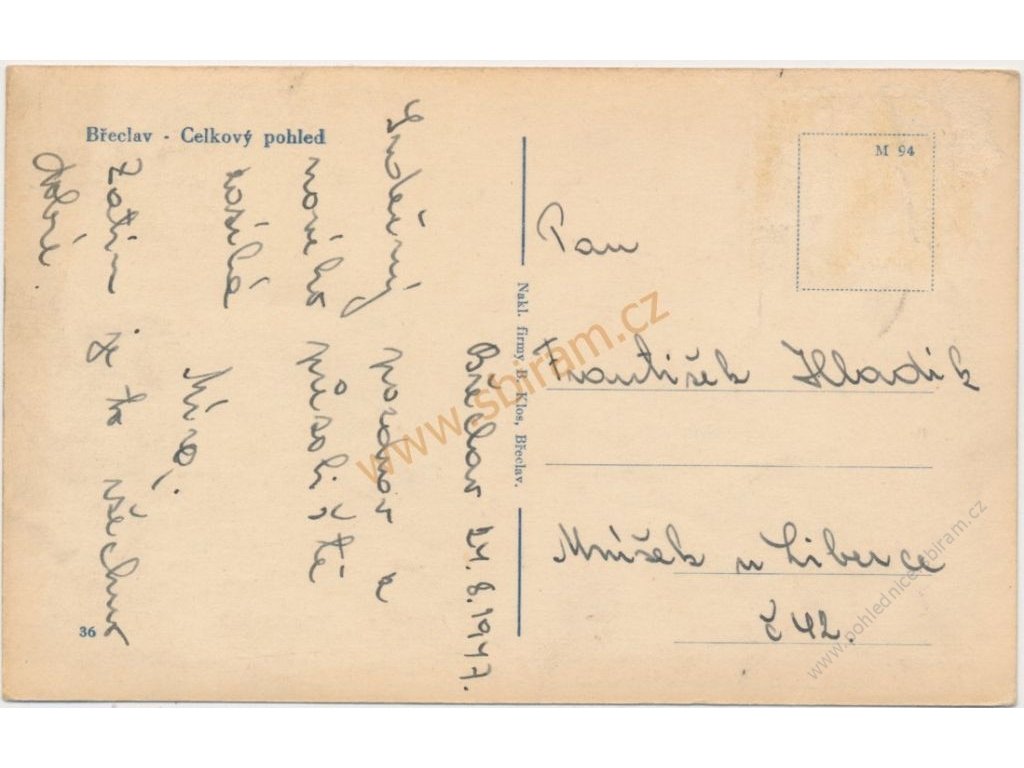 Břeclav - Celkový pohled
M 94
Břeclav 21.8.1947.
Srdečný pozdrav a
mnoho
Míra.
Zatím je to všechno
dobré.
36
Nakl. firmy B. Klos, Břeclav.
Pan
František Hladík
Mníšek u Liberce
č 42.
www.sbiram.cz
www.pohlednice.sbiram.cz